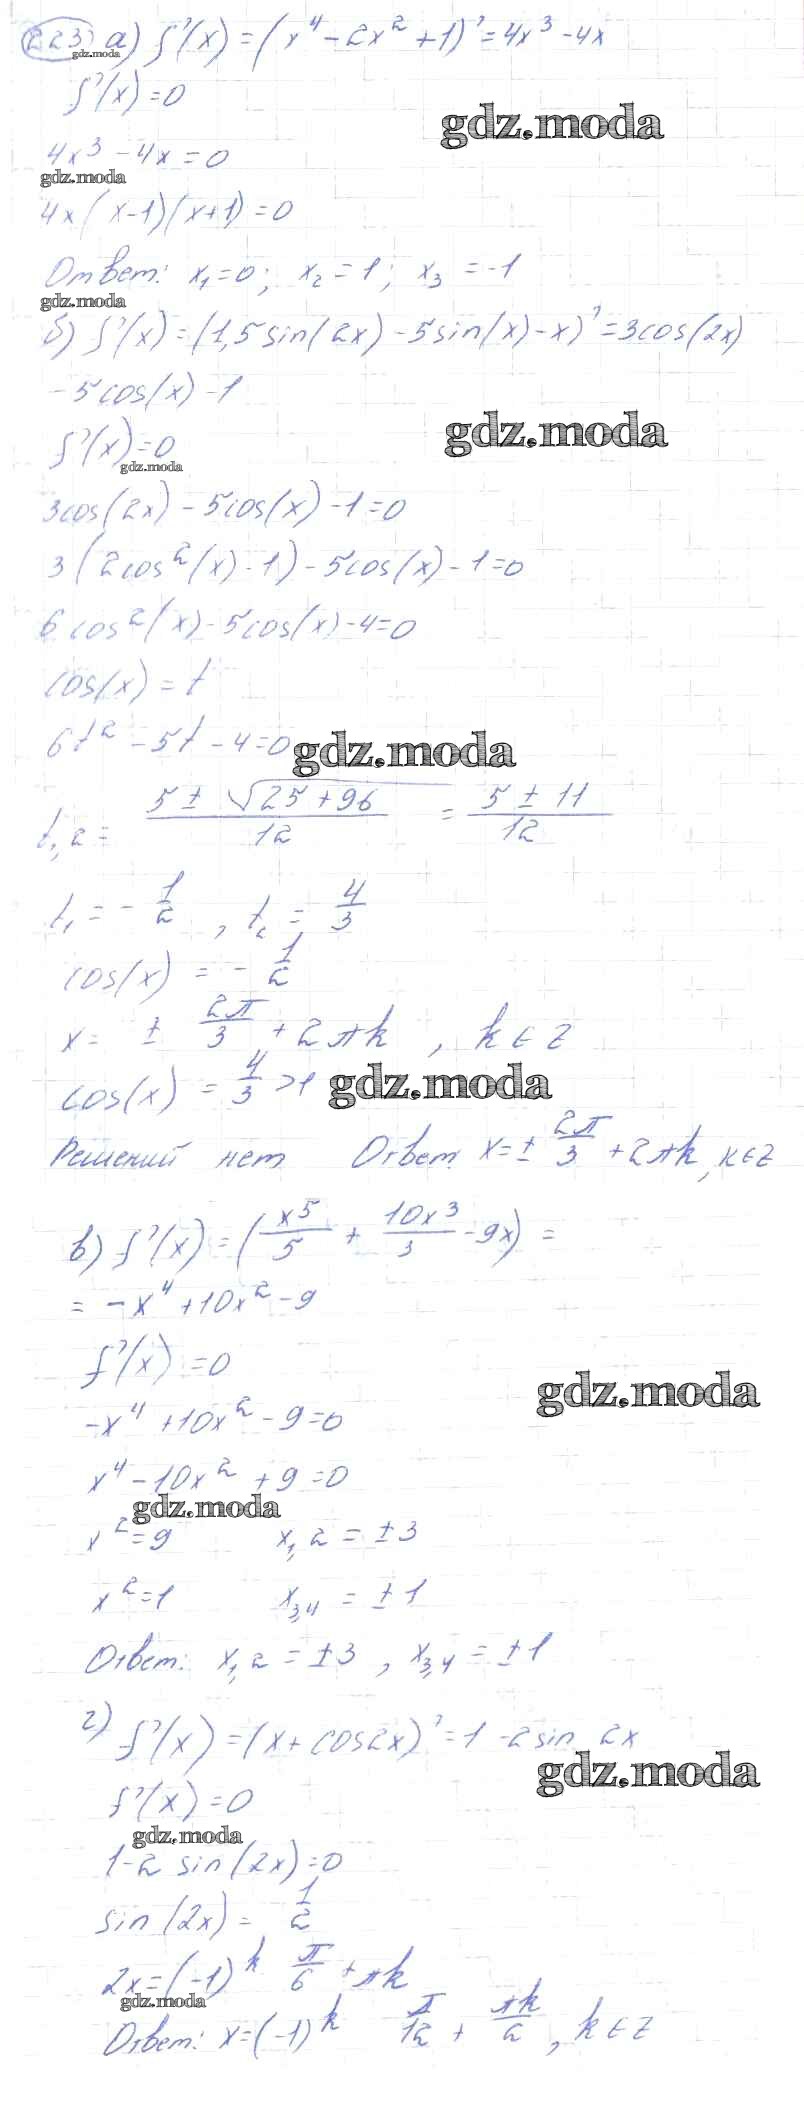 223) а) f'(x) = (x⁴ - 2x² + 1)' = 4x³ - 4x
gdz.moda
f'(x) = 0
gdz.moda
4x³ - 4x = 0
gdz.moda
4x(x-1)(x+1) = 0
Ответ: x₁ = 0; x₂ = 1; x₃ = -1
gdz.moda
б) f'(x) = (1,5sin(2x) - 5sin(x) - x)' = 3cos(2x)
- 5cos(x) - 1
gdz.moda
f'(x) = 0
gdz.moda
3cos(2x) - 5cos(x) - 1 = 0
3(2cos²(x) - 1) - 5cos(x) - 1 = 0
6cos²(x) - 5cos(x) - 4 = 0
cos(x) = t
6t² - 5t - 4 = 0
gdz.moda
t₁,₂ = (5 ± √(25 + 96))/12 = (5 ± 11)/12
t₁ = -1/2, t₂ = 4/3
cos(x) = -1/2
x = ± 2π/3 + 2πk, k ∈ Z
cos(x) = 4/3 > 1
gdz.moda
Решений нет Ответ x = ± 2π/3 + 2πk, k ∈ Z
в) f'(x) = (x⁵/5 + 10x³/3 - 9x) =
= -x⁴ + 10x² - 9
f'(x) = 0
gdz.moda
-x⁴ + 10x² - 9 = 0
x⁴ - 10x² + 9 = 0
gdz.moda
x² = 9 x₁,₂ = ±3
x² = 1 x₃,₄ = ±1
Ответ: x₁,₂ = ±3, x₃,₄ = ±1
г) f'(x) = (x + cos2x)' = 1 - 2sin 2x
gdz.moda
f'(x) = 0
gdz.moda
1 - 2 sin(2x) = 0
sin(2x) = 1/2
2x = (-1)ᵏ π/6 + πk
gdz.moda
Ответ: x = (-1)ᵏ π/12 + πk/2, k ∈ Z